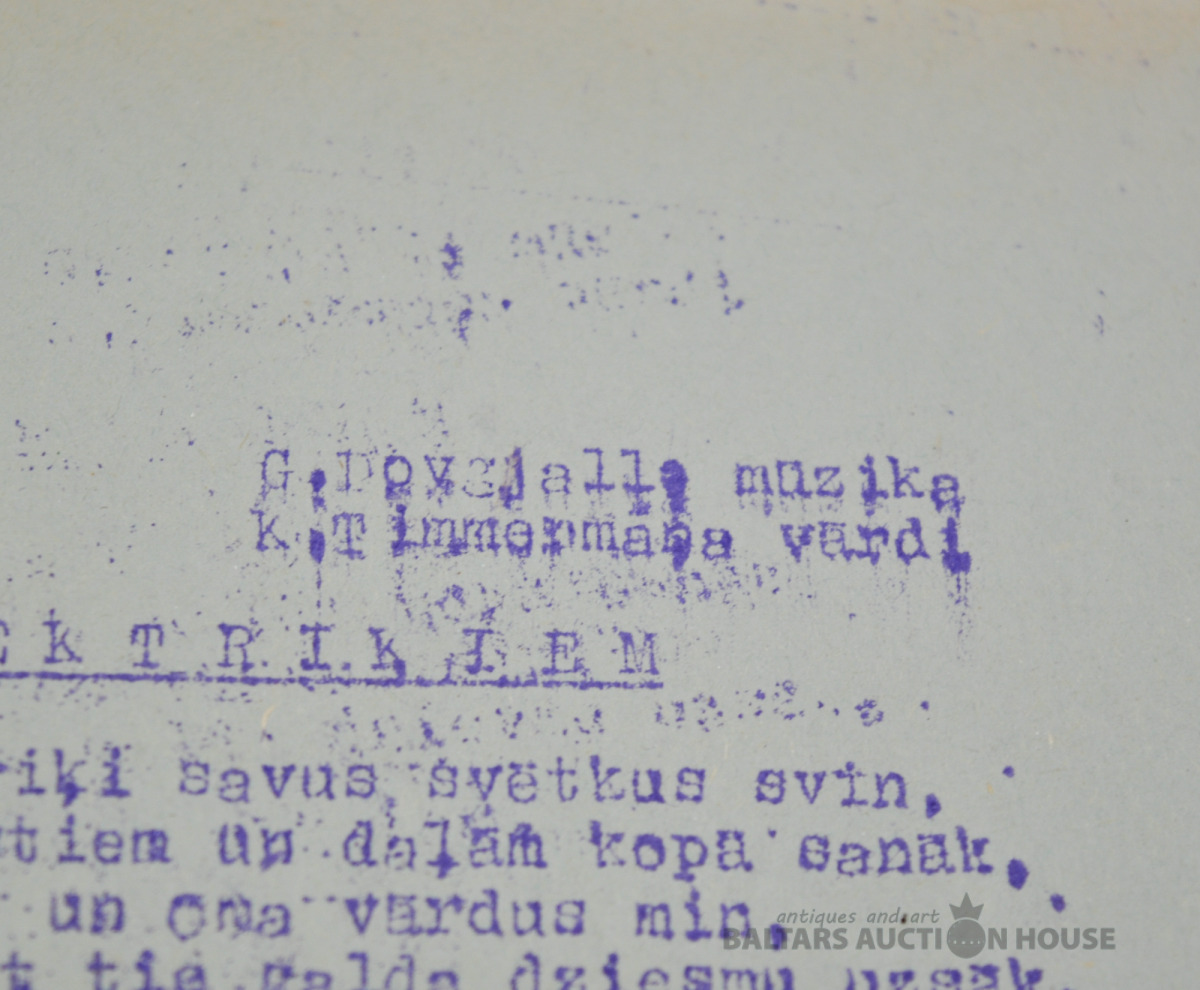 G. Dovgjallo muzika
K. Timmermaņa vārdi
EKTRIĶIEM
riķi savus svētkus svin,
tiem un daļām kopā sanāk,
un oma vārdus min,
t tie galda dziesmu uzsāk.
antiques and art
BALTARS AUCTION HOUSE